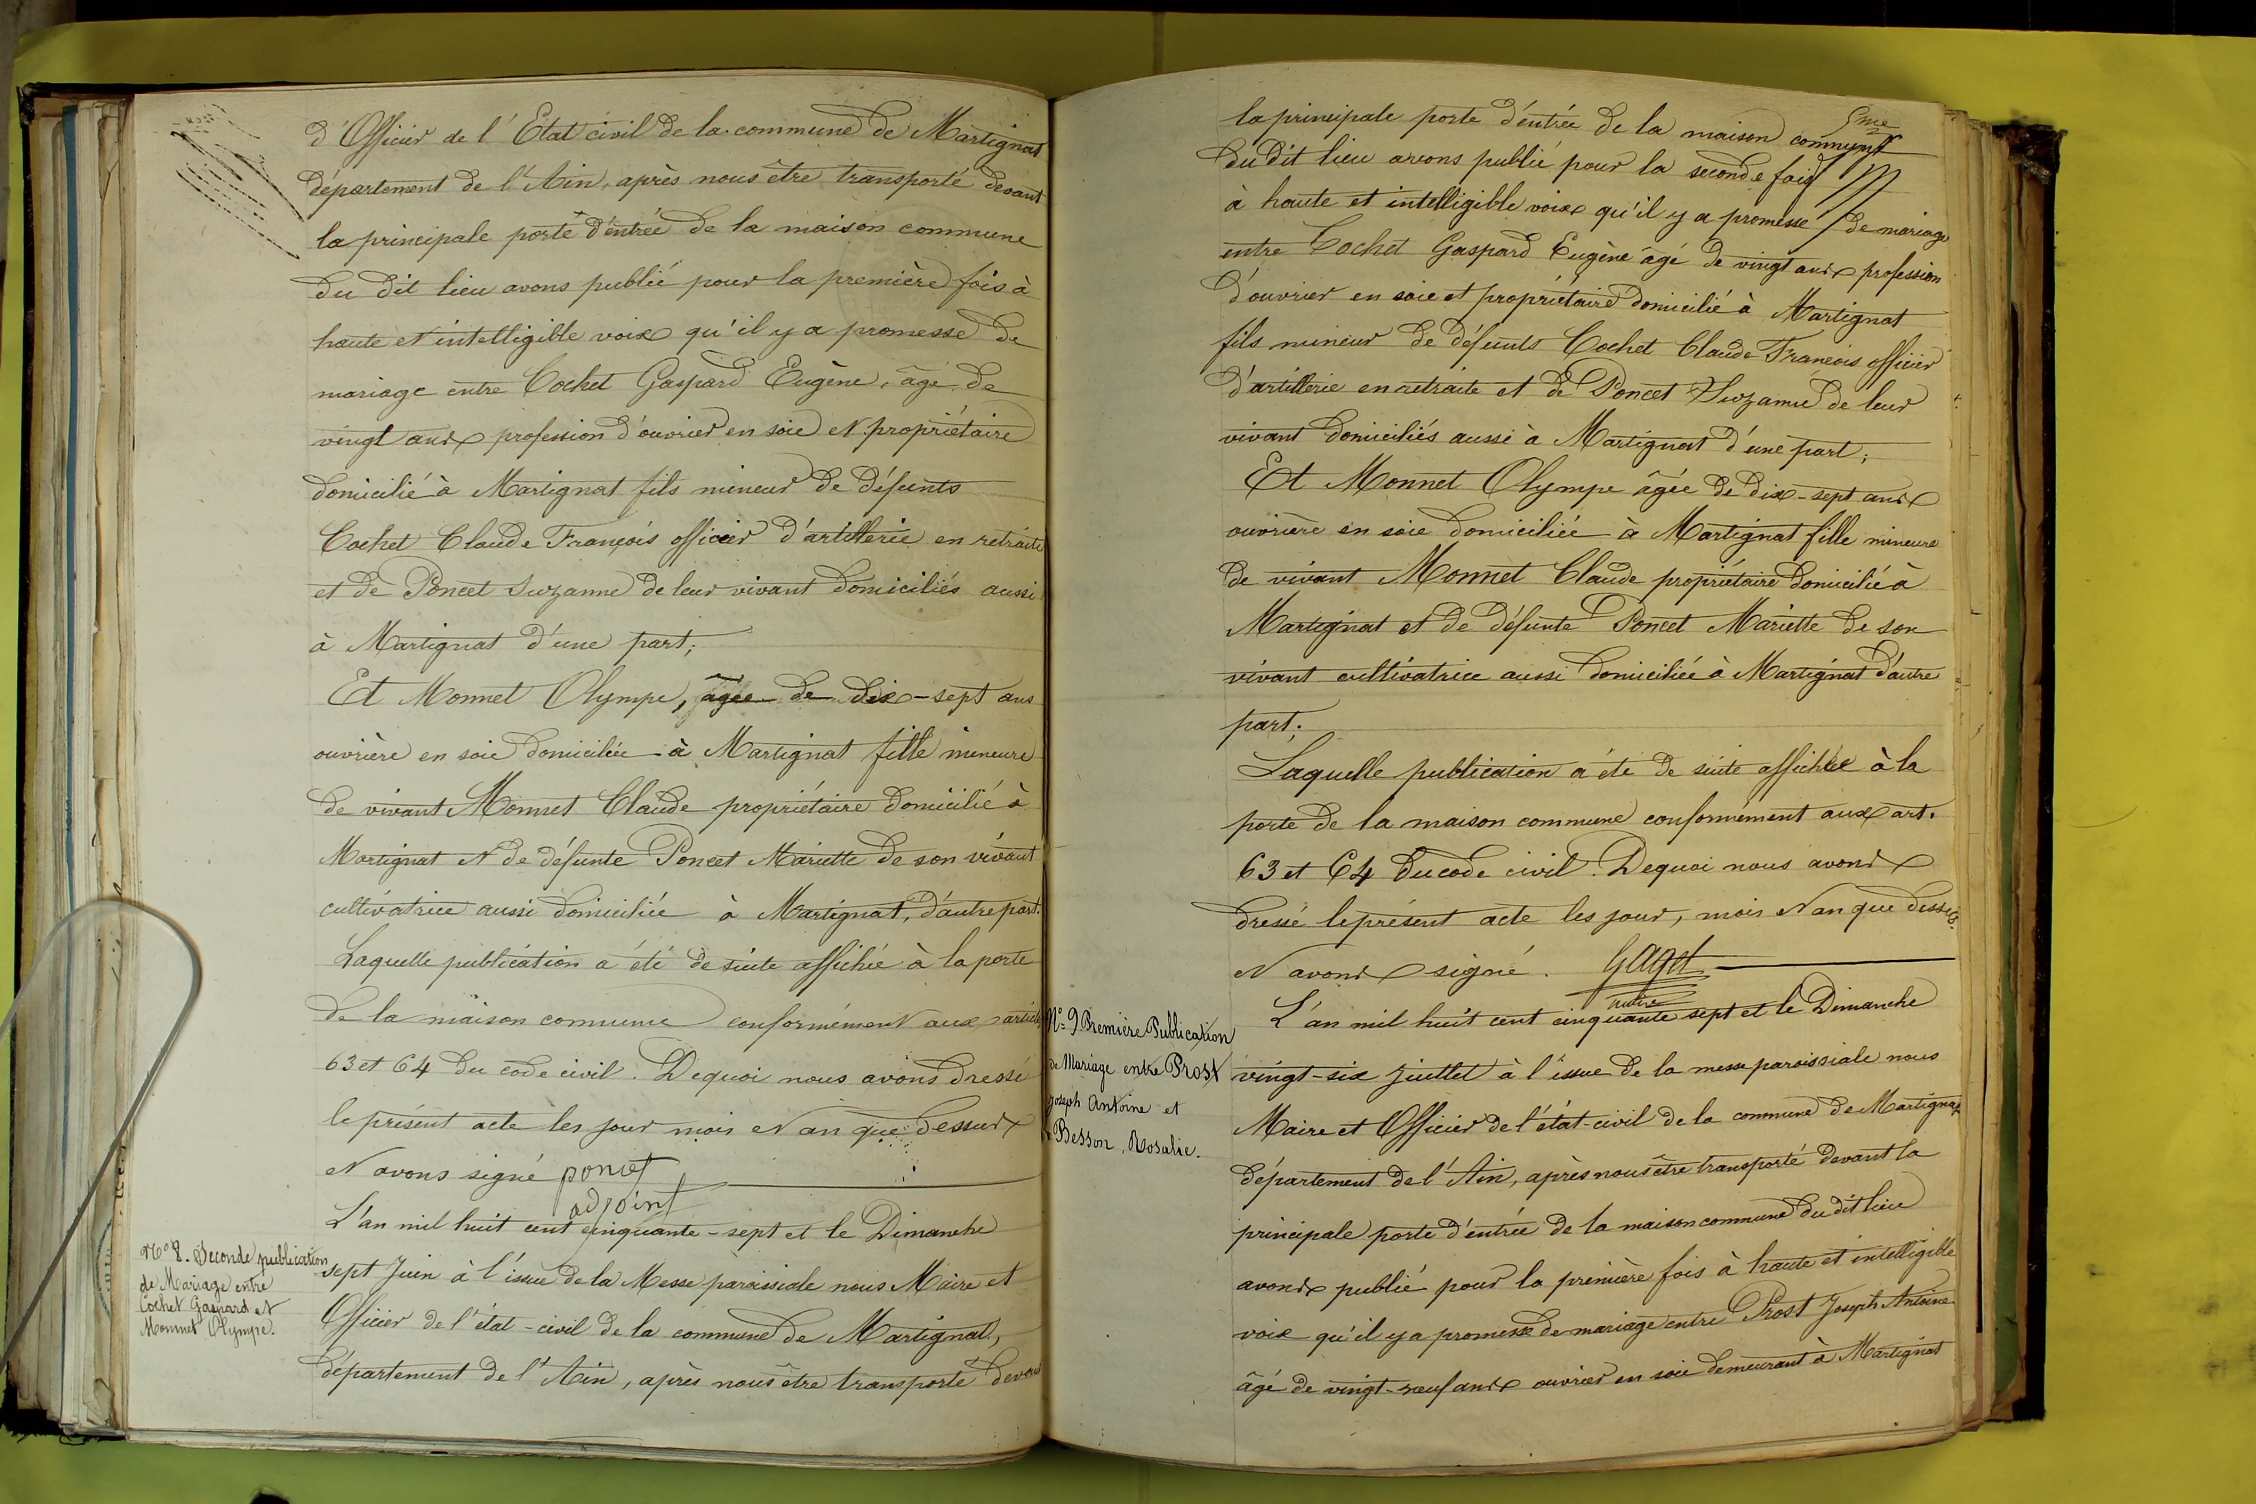 d'Officier de l'Etat civil de la commune de Martignat
département de l'Ain, après nous être transporté devant
la principale porte d'entrée de la maison commune
du dit lieu avons publié pour la première fois à
haute et intelligible voix qu'il y a promesse de
mariage entre Cochet Gaspard Eugène, âgé de
vingt ans profession d'ouvrier en soie et propriétaire
domicilié à Martignat fils mineur de défunts
Cochet Claude François officier d'artillerie en retraite
et de Poncet Suzanne de leur vivant domiciliés aussi
à Martignat d'une part;
Et Monnet Olympe, âgée de dix-sept ans
ouvrière en soie domiciliée à Martignat fille mineure
de vivant Monnet Claude propriétaire domicilié à
Martignat et de défunte Poncet Mariette de son vivant
cultivatrice aussi domiciliée à Martignat, d'autre part.
Laquelle publication a été de suite affichée à la porte
de la maison commune conformément aux articles
63 et 64 du code civil. Dequoi nous avons dressé
le présent acte les jour mois et an que dessus
et avons signé poncet
adjoint
N° 8. Seconde publication
de Mariage entre
Cochet Gaspard et
Monnet Olympe.
L'an mil huit cent cinquante-sept et le Dimanche
sept Juin à l'issue de la Messe paroissiale nous Maire et
Officier de l'état-civil de la commune de Martignat,
département de l'Ain, après nous être transporté devant
la principale porte d'entrée de la maison commune
du dit lieu avons publié pour la seconde fois
à haute et intelligible voix qu'il y a promesse de mariage
entre Cochet Gaspard Eugène âgé de vingt ans profession
d'ouvrier en soie et propriétaire domicilié à Martignat
fils mineur de défunts Cochet Claude François officier
d'artillerie en retraite et de Poncet Suzanne de leur
vivant domiciliés aussi à Martignat d'une part;
Et Monnet Olympe âgée de dix-sept ans
ouvrière en soie domiciliée à Martignat fille mineure
de vivant Monnet Claude propriétaire domicilié à
Martignat et de défunte Poncet Mariette de son
vivant cultivatrice aussi domiciliée à Martignat d'autre
part.
Laquelle publication a été de suite affichée à la
porte de la maison commune conformément aux art.
63 et 64 du code civil. Dequoi nous avons
dressé le présent acte les jour, mois et an que dessus
et avons signé. Gaget
N° 9 Première Publication
de Mariage entre Prost
Joseph Antoine et
Besson, Rosalie.
L'an mil huit cent cinquante sept et le Dimanche
vingt-six juillet à l'issue de la messe paroissiale nous
Maire et Officier de l'état-civil de la commune de Martignat
département de l'Ain, après nous être transporté devant la
principale porte d'entrée de la maison commune du dit lieu
avons publié pour la première fois à haute et intelligible
voix qu'il y a promesse de mariage entre Prost Joseph Antoine
âgé de vingt-neuf ans ouvrier en soie demeurant à Martignat